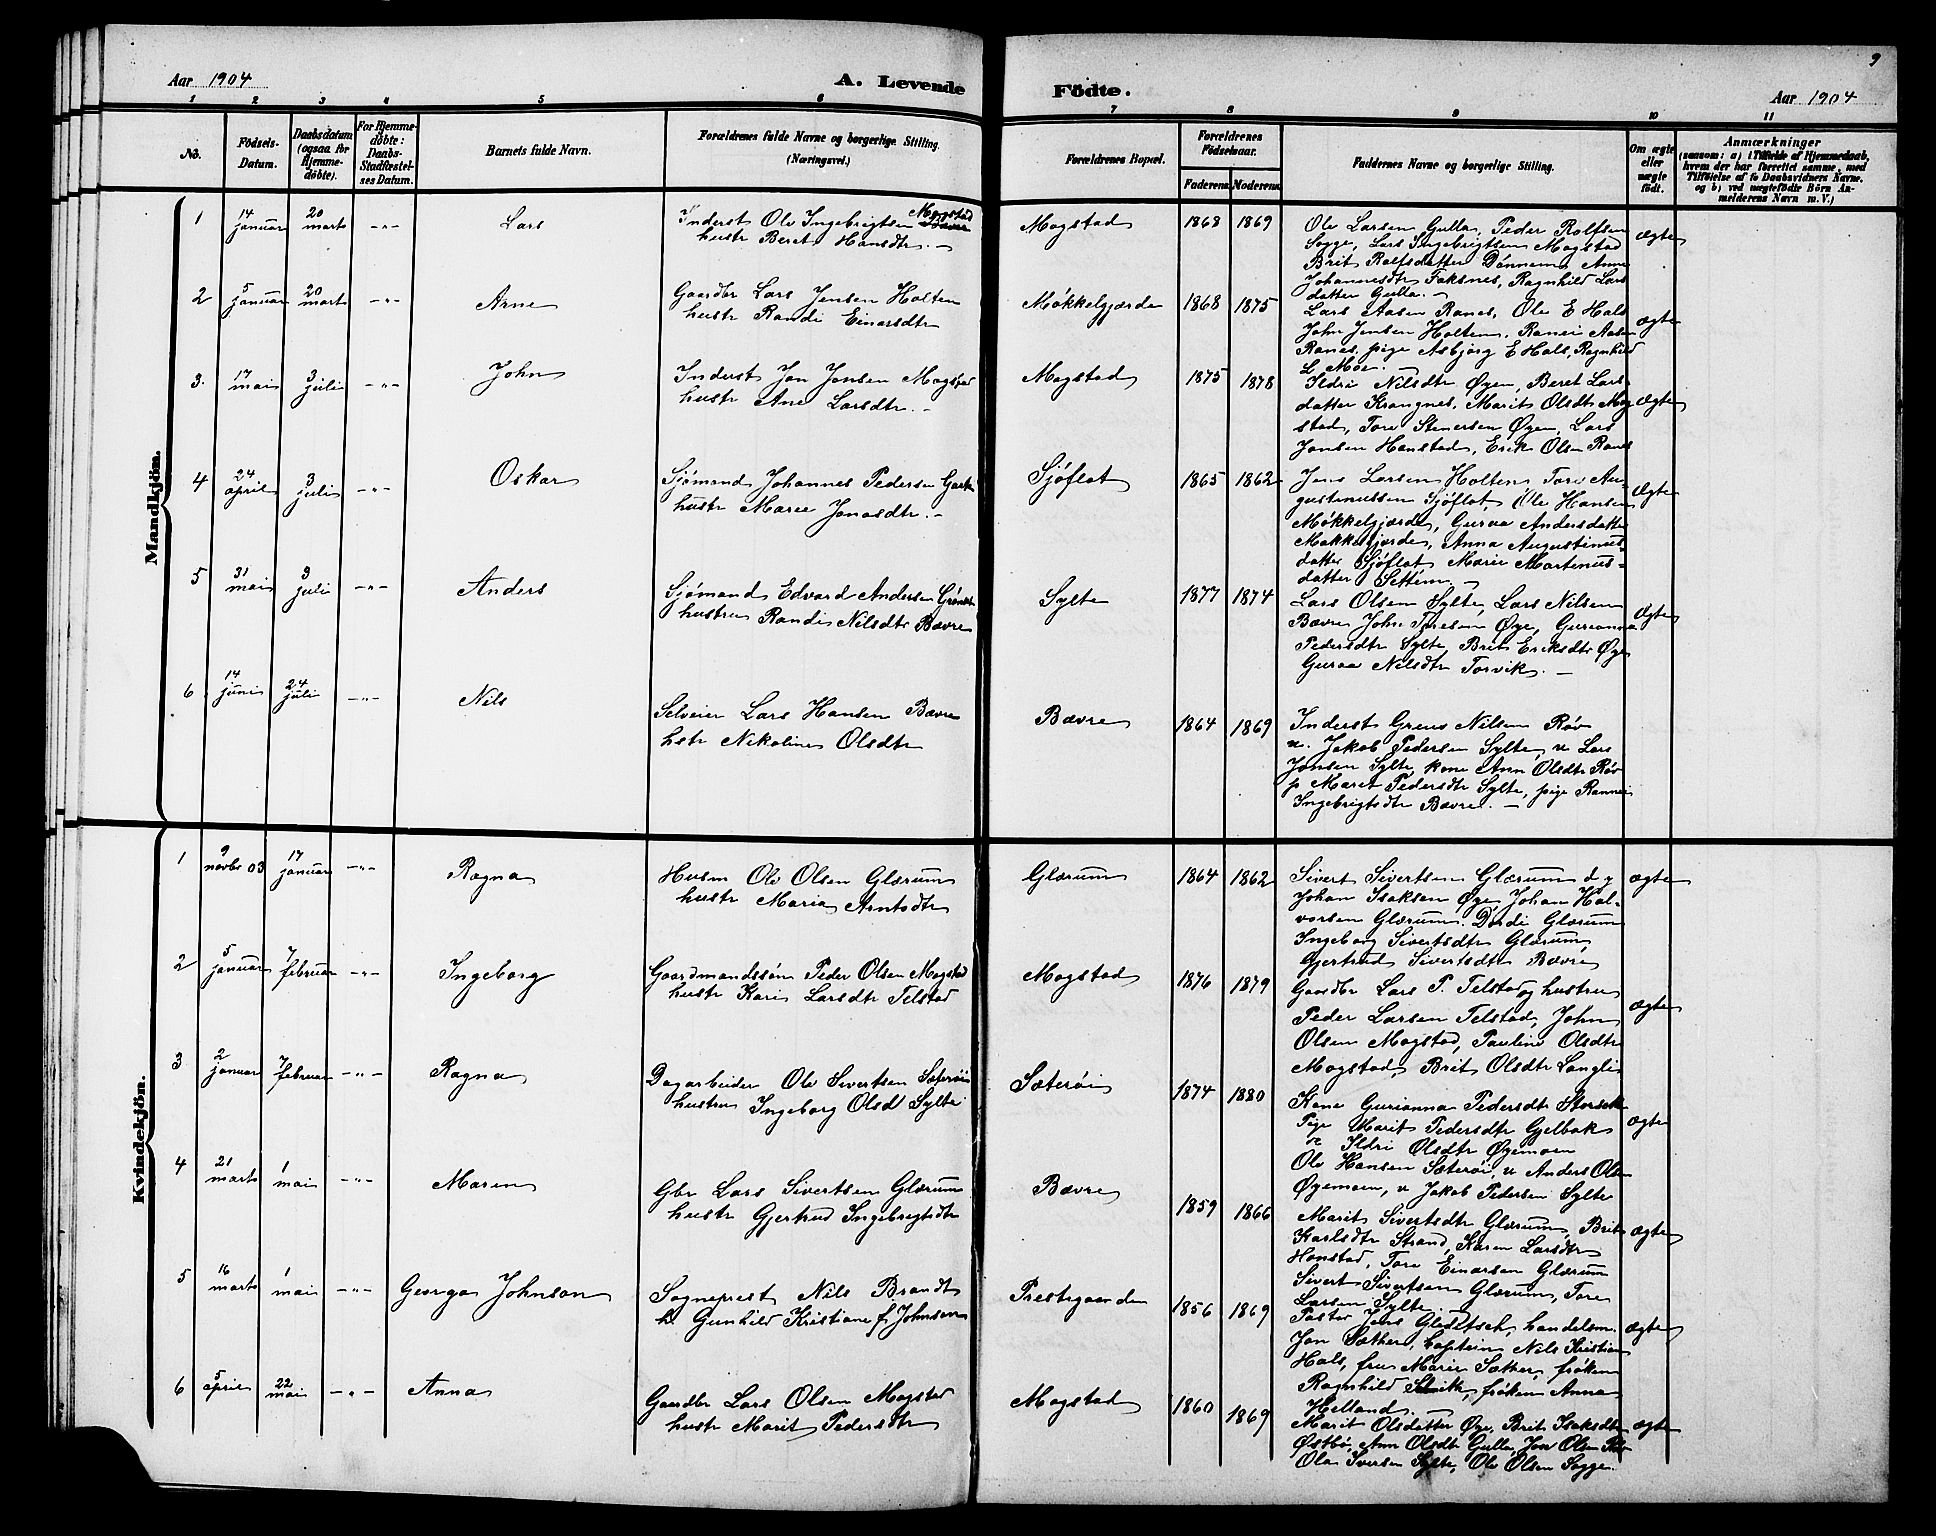 Aar 1904
A. Levende Födte.
Aar 1904
9
1 2 3 4 5 6 7 8 9 10 11
No.
Födsels-Datum.
Daabsdatum (ogsaa for Hjemme-döbte).
For Hjemme-döbte: Daabs-Stadfæstel-ses Datum.
Barnets fulde Navn.
Forældrenes fulde Navne og borgerlige Stilling. (Næringsvei.)
Forældrenes Bopæl.
Forældrenes Födselsaar.
Faderens. Moderens.
Faddernes Navne og borgerlige Stilling.
Om ægte eller uægte födt.
Anmærkninger
(saasom: a) i Tilfælde af Hjemmedaab, hvem der har forrettet samme, med Tilföielse af to Daabsvidners Navne. og b) ved uægtefödte Börn Anmelderens Navn m. V.)
Mandkjön.
1 14 januar 20 marts -"- Lars
Inderst Ole Ingebrigtsen Mogstad
hustr Beret Hansdtr. -
Mogstad 1868 1869
Ole Larsen Gulla, Peder Rolfsen
Sogge, Lars Ingebrigtsen Mogstad
Brit Rolfsdatter Dønnem, Anne
Johannesdtr Faksnes, Ragnhild Lars
datter Gulla. -
ægte
2 5 januar 20 marts -"- Arne
Gaardbr Lars Jensen Holten
hustr Randi Einarsdtr
Møkkelgjærde 1868 1875
Lars Aasen Ranes, Ole E Hals
John Jensen Holten, Ranei Aasen
Ranes, pige Asbjørg E Hals, Ragnhild
L Moe. -
ægte
3. 17 mai 3 juli -"- John
Inderst Jon Jonsen Mogstad
hustr Ane Larsdtr. -
Mogstad 1875 1878
Ildri Nilsdtr Øyen, Beret Lars-
datter Krangnes, Marit Olsdtr Mog
stad, Tore Stenersen Øyen, Lars
Jonsen Hanstad, Erik Olsen Ranes
ægte
4 24 april 3 juli -"- Oskar
Sjømand Johannes Pedersen
hustr Marie Jonasdtr. -
Sjøflot 1865 1862
Jens Larsen Holten Tore Au-
gustinussen Sjøflot, Ole Hansen
Møkkelgjærde, Guraa Andersdatter
Møkkelgjærde, Anna Augustinus-
datter Sjøflot Marie Martinus-
datter Settem. -
ægte
5 31 mai 3 juli -"- Anders
Sjømand Edvard Andersen
hustru Randi Nilsdtr Bævre
Sylte 1877 1874
Lars Olsen Sylte, Lars Nilsen
Bævre John Toresen Øye, Gurianna
Pedersdtr Sylte, Brit Eriksdtr Øye
Guraa Nilsdtr Torvik. -
ægte
6 14 juni 24 juli -"- Nils
Selveier Lars Hansen Bævre
hstr Nikoline Olsdtr
Bævre 1864 1869
Inderst Nilsen Røv
u. Jakob Pedersen Sylte, u Lars
Jonsen Sylte kone Ann Olsdtr Røv
p Maret Pedersdtr Sylte, pige Rannei
Ingebrigtsdtr Bævre. -
Kvindekjön.
1 9 novbr 03 17 januar -"- Ragna
Husm Ole Olsen Glærum
hustr Maria Arntsdtr
Glærum 1864 1862
Sivert Sivertsen Glærum d y
Johan Isaksen Øye Johan Hal-
vorsen Glærum. Dordi Glærum
Ingeborg Sivertsdtr Glærum,
Gjertrud Sivertsdtr Bævre
ægte
2 5 januar 7 februar -"- Ingeborg
Gaardmandssøn Peder Olsen Mogstad
hustr Kari Larsdtr Telstad
Mogstad 1876 1879
Gaardbr Lars P. Telstad og hustru
Peder Larsen Telstad, John
Olsen Mogstad, Pauline Olsdtr
Mogstad, Brit Olsdtr Langli
ægte
3 2 januar 7 februar -"- Ragna
Dagarbeider Ole Sivertsen Sæterøi
hustru Ingeborg Olsd Sylte
Sæterøi 1874 1880
Kone Gurianna Pedersdtr
Pige Marit Pedersdtr Gjelbak
" Ildri Olsdtr Øyemoen
Ole Hansen Sæterøi, u Anders Olsen
Øyemoen, u Jakob Pedersen Sylte
ægte
4 21 marts 1 mai -"- Maren
Gbr Lars Sivertsen Glærum
hustr Gjertrud Ingebrigtsdtr
Bævre 1859 1866
Marit Sivertsdtr Glærum, Brit
Karlsdtr Strand, Karen Larsdtr
Honstad, Tore Einarsen Glærum
Sivert Sivertsen Glærum, Tore
Larsen Sylte.
ægte
5 16 marts 1 mai -"- Georga Johnson
Sogneprest Nils Brandt
h. Gunhild Kristiane f Johnsen
Prestegaarden 1856 1869
Pastor Jens Gleditsch, handelsm.
Jon Sæther, kaptein Nils Kristian
Hals, fru Marie Sæther, frøken
Ragnhild, frøken Anna
Helland. -
ægte
6 5 april 22 mai -"- Anna
Gaardbr Lars Olsen Mogstad
hustr Marit Pedersdtr
Mogstad 1860 1869
Marit Olsdatter Øye, Brit Isaksdtr
Østbø, Ann Olsdtr Gulla, Jon Olsen
Ola Iversen Sylte, Ole Olsen Sogge.
ægte